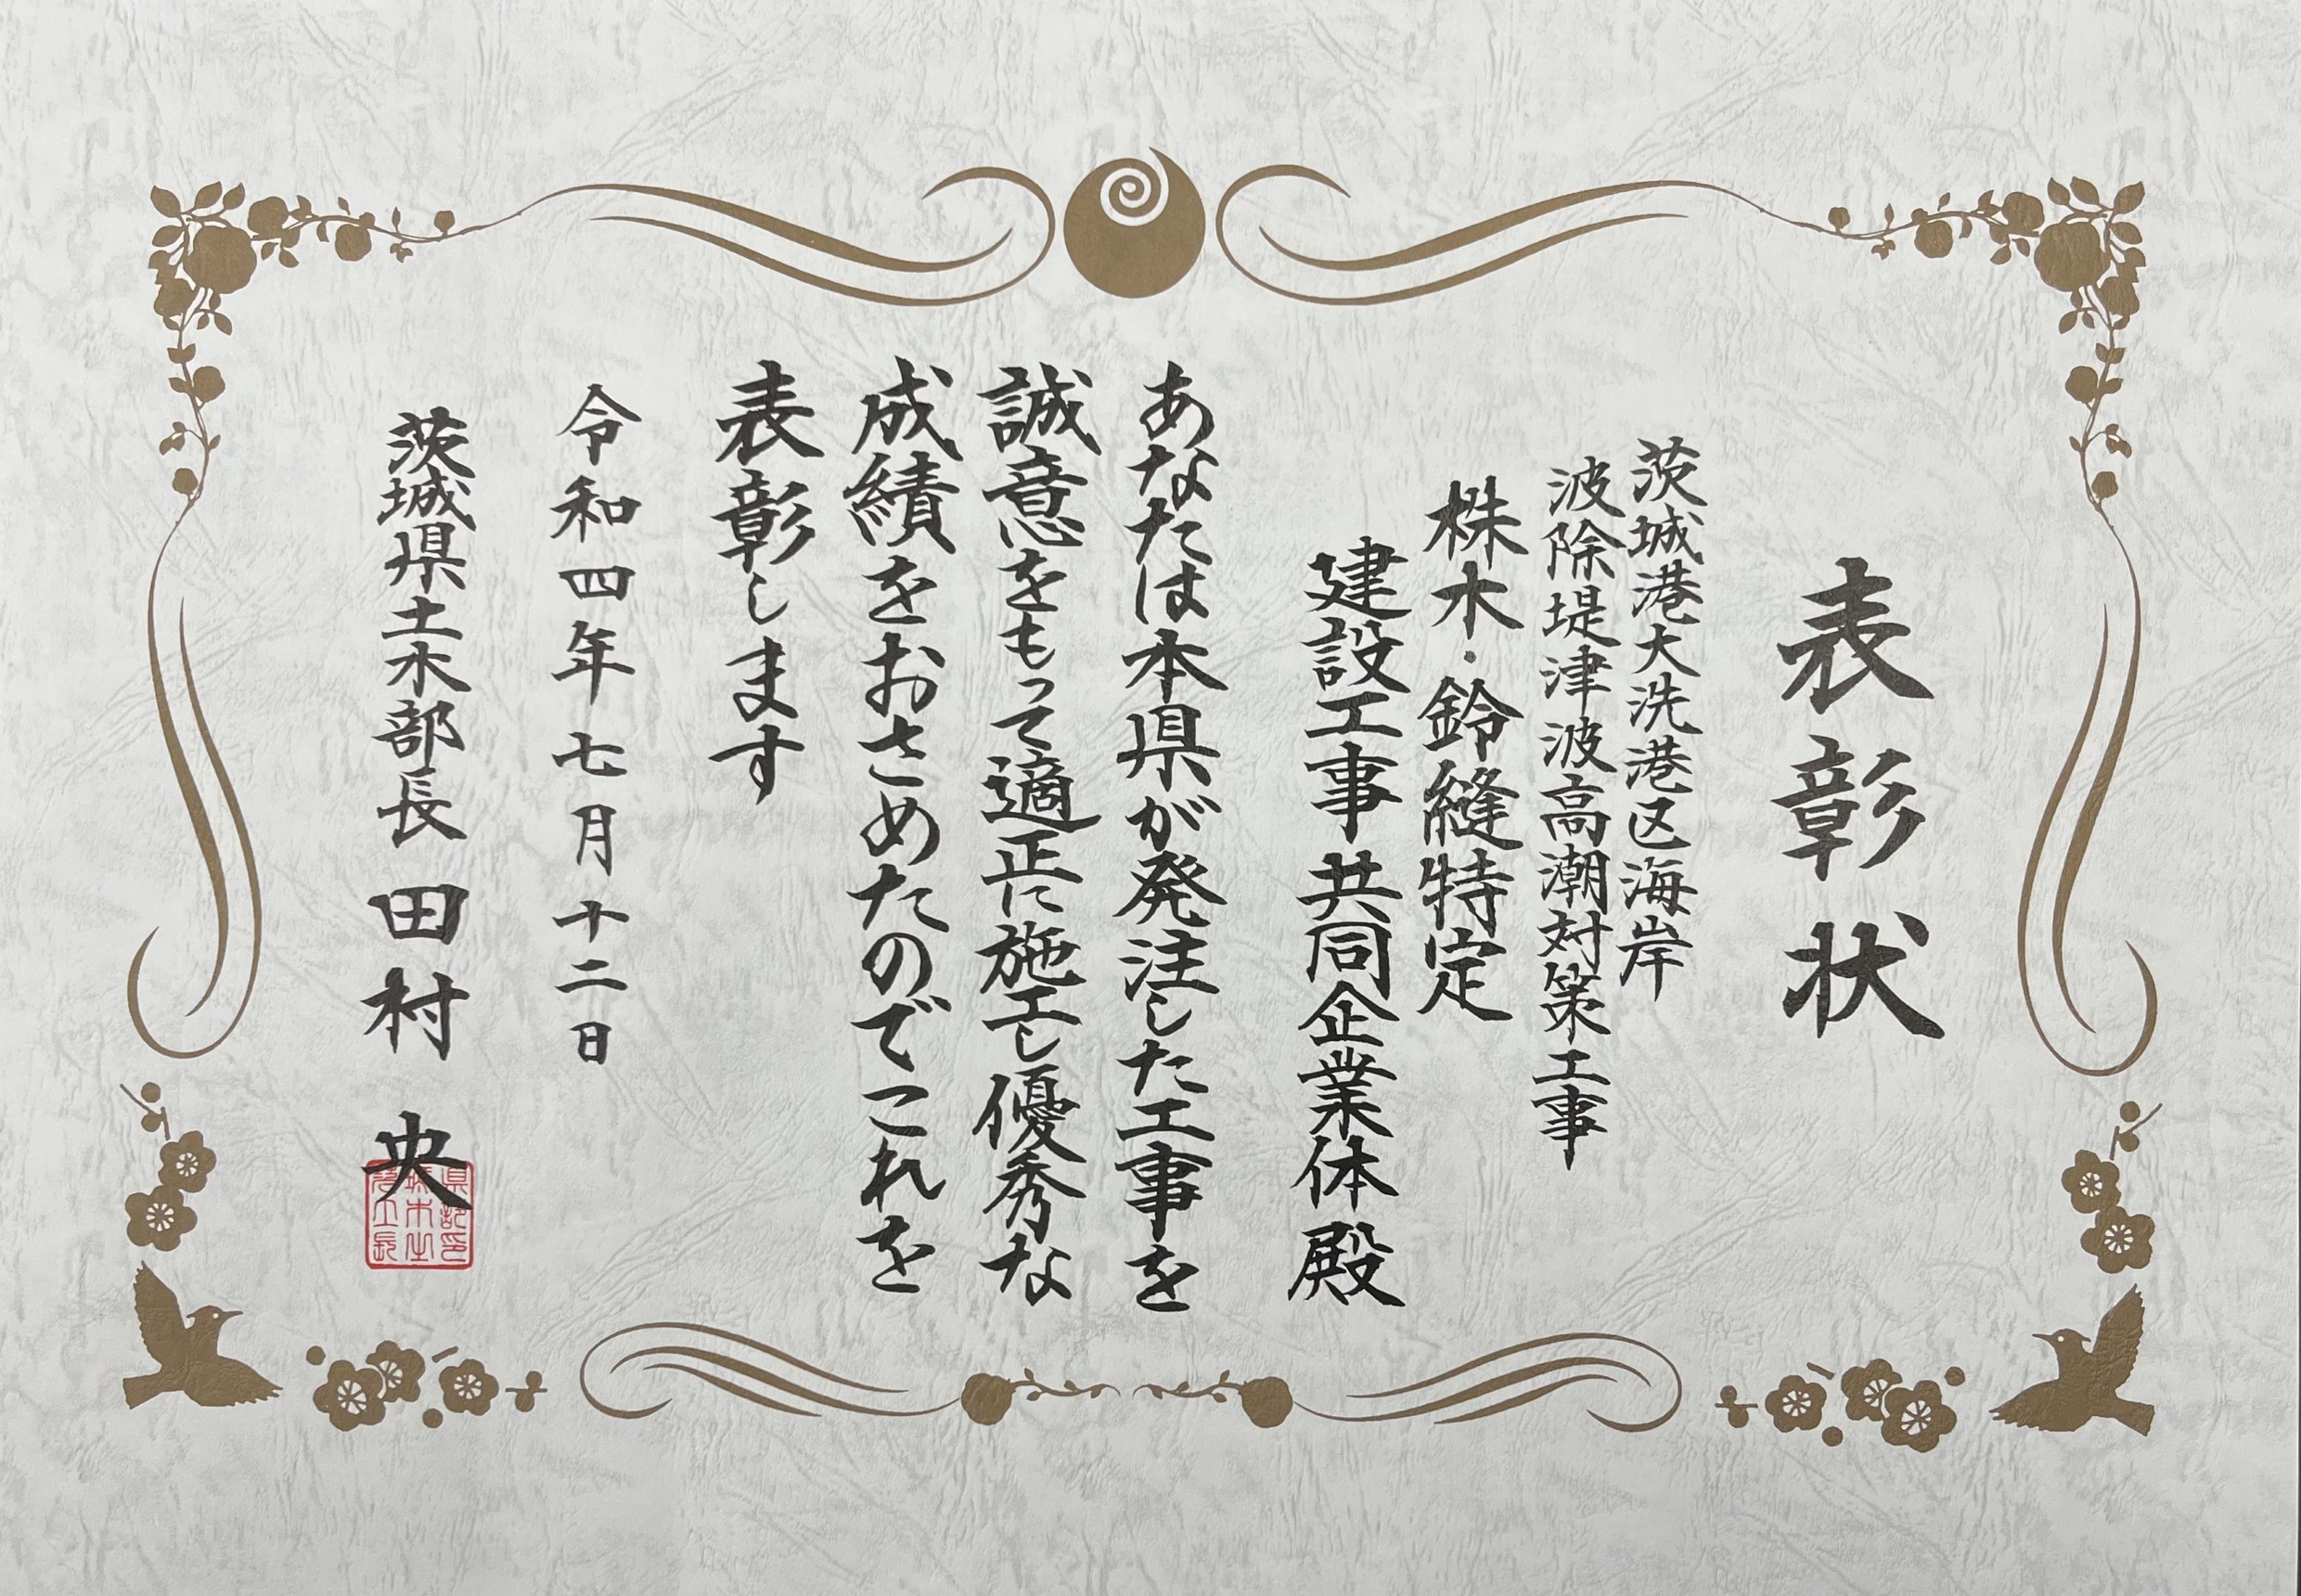 表彰状
茨城港大洗港区海岸
波除堤津波高潮対策工事
株木・鈴縫特定
建設工事共同企業体殿
あなたは本県が発注した工事を
誠意をもって適正に施工し優秀な
成績をおさめたのでこれを
表彰します
令和四年七月十二日
茨城県土木部長 田村 央